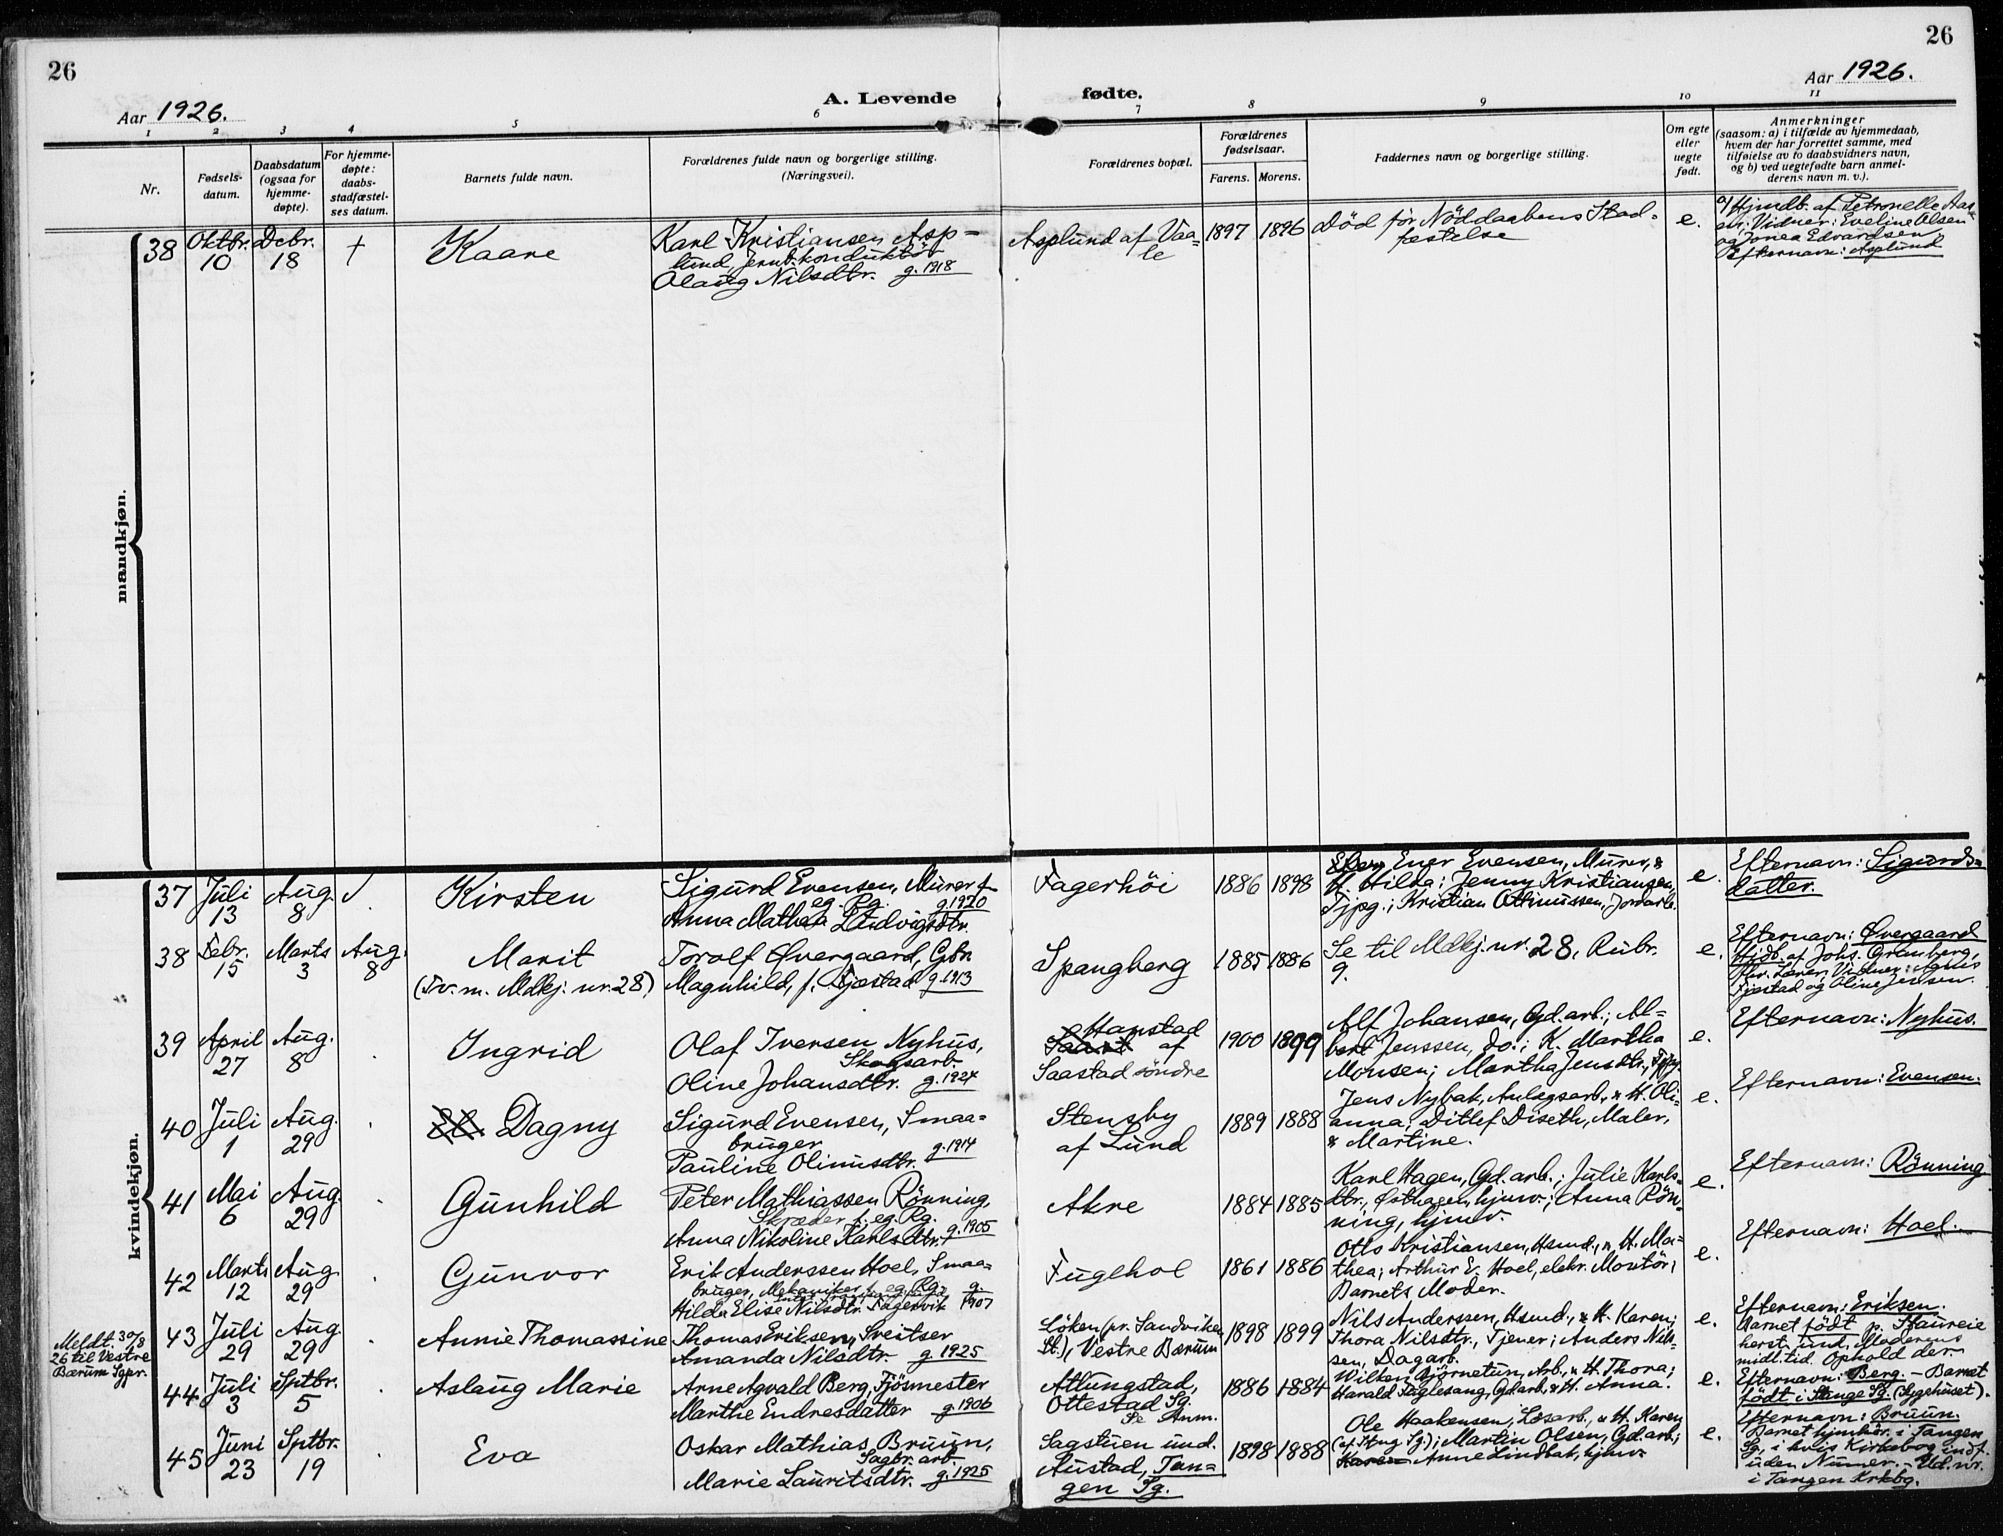 26
26
Aar 1926.
A. Levende fødte.
Aar 1926.
1 2 3 4 5 6 7 8 9 10 11
Nr.
Fødsels-
datum.
Daabsdatum
(ogsaa for
hjemme-
døpte).
For hjemme-
døpte:
daabs-
stadfæstel-
ses datum.
Barnets fulde navn.
Forældrenes fulde navn og borgerlige stilling.
(Næringsvei).
Forældrenes bopæl.
Forældrenes
fødselsaar.
Farens. Morens.
Faddernes navn og borgerlige stilling.
Om egte
eller
uegte
født.
Anmerkninger
(saasom: a) i tilfælde av hjemmedaab,
hvem der har forrettet samme, med
tilføielse av to daabsvidners navn,
og b) ved uegtefødte barn anmel-
derens navn m. v.).
mandkjøn.
38
Oktbr.
10
Debr.
18
†
Kaare
Karl Kristiansen Asp-
lund, Jernb.konduktør
Olaug Nilsdtr. g. 1918
Asplund af Vaa-
le
1897
1896
Död för Nöddaabens Stad-
festelse
e.
a/ Hjmdb. af Petronelle Aas-
en: Vidner: Eveline Olsen
og Jonea Edvardsen.
Efternavn: Asplund
kvindekjøn.
37
Juli
13
Aug.
8
Kirsten
Sigurd Evensen, Murer f.
eg. Rg. g. 1920
Anna Mathea Ludvigsdtr.
Fagerhöi
1886
1898
Ener Evensen, Murer, &
H. Hilda; Jenny Kristiansen,
Tjpg.; Kristian Ottinussen, Jordarb.
e.
Efternavn: Sigurds-
datter.
38
Febr.
15
Marts
3
Aug.
8
Marit
(Tv. m. Mdkj. nr. 28)
Torolf Øvergaard, Gbr.
Magnhild, f. Fjæstad g. 1913
Spangberg
1885
1886
Se til Mdkj. nr. 28, Rubr.
9.
e.
Efternavn: Øvergaard
Hjdb. af Johs. Granberg,
Lærer, Vidner: Agnes
Fjæstad og Oline Jensen.
39
April
27
Aug.
8
Ingrid
Olaf Iversen Nyhus,
Skogsarb.
Oline Johansdtr. g. 1924
Hamstad
af
Saastad söndre
1900
1899
Alf Johansen, Gd.arb.; Al-
bert Jenssen, do.; K. Martha
Monsen; Martha Jensdtr., Tjpg.
e.
Efternavn: Nyhus.
40
Juli
1
Aug.
29
Dagny
Sigurd Evensen, Smaa-
bruger
Pauline Olinusdtr. g. 1914
Stensby
af Lund
1889
1888
Jens Nybak, Anlægsarb., & H. Oli-
anna; Ditlef Diseth, Maler,
& Martine.
e.
Efternavn: Evensen.
41
Mai
6
Aug.
29
Gunhild
Peter Mathiassen Rönning,
Skræder f. eg. Rg.
Anna Nikoline Karlsdtr. g. 1905
Akre
1884
1885
Karl Hagen, Gd.arb.; Julie Karls-
dtr., Østhagen, hjmv.; Anna Rön-
ning, hjmv.
e.
Efternavn: Rönning
42
Marts
12
Aug.
29
Gunvor
Erik Anderssen Hoel, Smaa-
bruger, Mekaniker f. eg. Rg. g.
Hilda Elise Nilsdtr. Fagervik 1907
Fuglhol
1861
1886
Otto Kristiansen, Hsmd., & H. Ma-
thea; Arthur E. Hoel, elekr. Montör;
Barnets Moder.
e.
Efternavn: Hoel.
Meldt. 30/8
26 til Vestre
Bærum Sgpr.
43
Juli
29
Aug.
29
Annie Thomassine
Thomas Eriksen, Sveitser
Amanda Nilsdtr. g. 1925
Löken (pr. Sandviken
St.), Vestre Bærum
1898
1899
Nils Anderssen, Hsmd., & H. Karen;
Thora Nilsdtr., Tjener; Anders Nils-
sen, Dagarb.
e.
Efternavn: Eriksen.
Barnet födt p. Staureie
herst. und. Moderens
midl. tid. Ophold der
44
Juli
3
Sptbr.
5
Aslaug Marie
Arne Agvald Berg, Fjösmester
Marthe Endresdatter g. 1906
Atlungstad,
Ottestad Sg.
Se Anm.
1886
1884
Wilken Björnetun, Arb., & H. Thora;
Harald Fuglesang, Gd.arb., & H. Anna.
e.
Efternavn: Berg. - Barnet
födt i Stange Sg. (Sygehuset).
45
Juni
23
Sptbr.
19
Eva
Oskar Mathias Bruun,
Sagbr. arb.
Marie Lauritsdtr. g. 1925
Sagstuen und.
Austad, Tan-
gen Sg.
1898
1888
Ole Haakensen, Løsarb., & H. Karen
(af Stang Sg.); Martin Olsen, Gd.arb.;
Karen Anne Lindbak, hjmv.
e.
Efternavn: Bruun.
Barnet hjmhör. i Tangen
Sg., i hvis Kirkebog indf.
uden Numer. - Ud. nr.
i Tangen Krkbg.